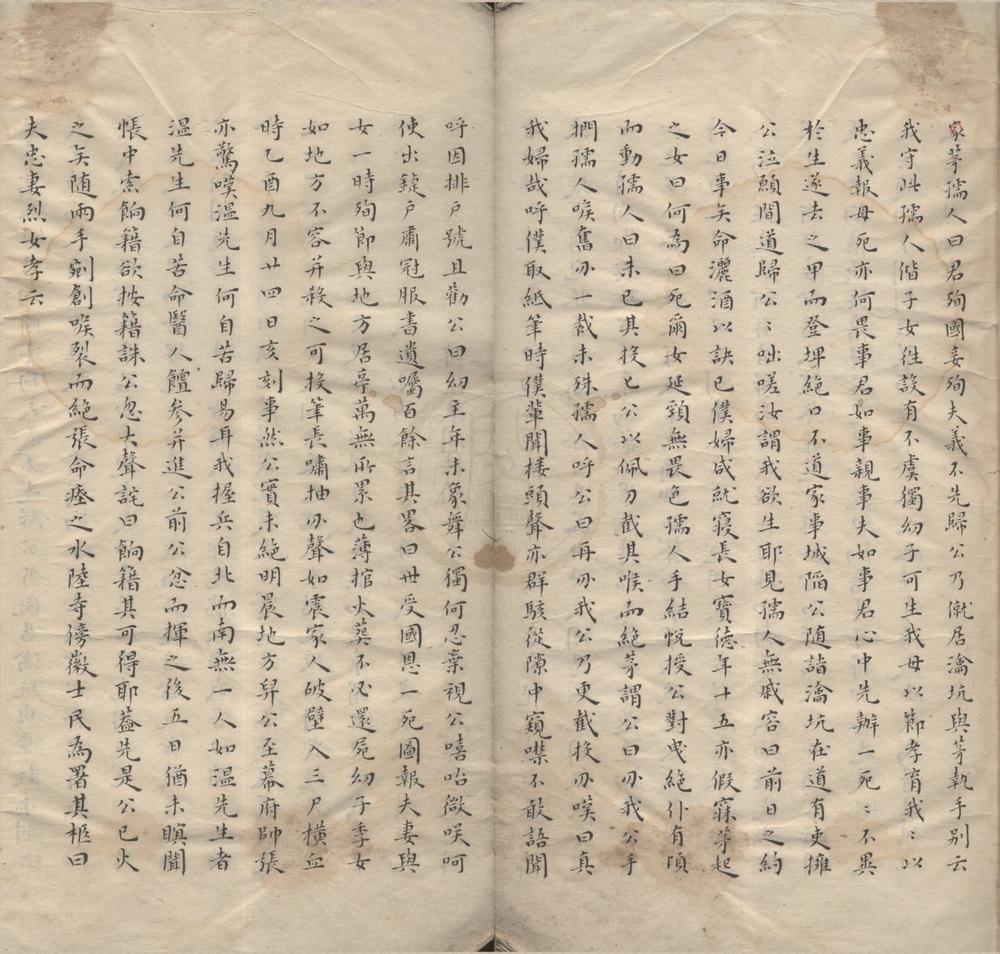 家茅孺人曰君殉國妾殉夫義不先歸公乃僦居瀹坑與茅執手别云
我守此孺人偕子女徃設有不虞獨幼子可生我母以節孝育我〻以
忠義報母死亦何畏事君如事親事夫如事君心中先辦一死〻不異
於生遂去之甲而登埤絶口不道家事城陷公随詣瀹坑在道有吏擁
公泣願間道歸公〻咄嗟汝謂我欲生耶見孺人無戚容曰前日之約
今日事矣命灑酒以訣已僕婦咸就寢長女寶德年十五亦假寐茅起
之女曰何為曰死爾女延頸無畏色孺人手結帨授公對曳絶仆有頃
而動孺人曰未已其投匕公以佩刀截其喉而絶茅謂公曰刃我公手
捫孺人喉奮刃一截未殊孺人呼公曰再刃我公乃更截投刃嘆曰真
我婦哉呼僕取紙筆時僕輩聞楼頭聲亦群駭從隙中窺噤不敢語聞
呼因排戶號且勸公曰幼主年未象舞公獨何忍棄視公嘻咍微咲呵
使出鍵戶肅冠服書遺囑百餘言其畧曰世受國恩一死圖報夫妻與
女一時殉節與地方居亭萬無所累也薄棺火葬不必還屍幼子季女
如地方不容并殺之可投筆長嘯抽刃聲如震家人破壁入三尸橫血
時乙酉九月廿四日亥刻事然公實未絶明晨地方舁公至幕府帥張
亦驚嘆温先生何自苦歸易耳我握兵自北而南無一人如温先生者
温先生何自苦命醫人饘參并進公前公忿而揮之後五日猶未瞑聞
帳中索餉籍欲按籍誅公忽大聲詫曰餉籍其可得耶葢先是公已火
之矣随兩手剜創喉裂而絶張命瘞之水陸寺傍徽士民為署其柩曰
夫忠妻烈女孝云